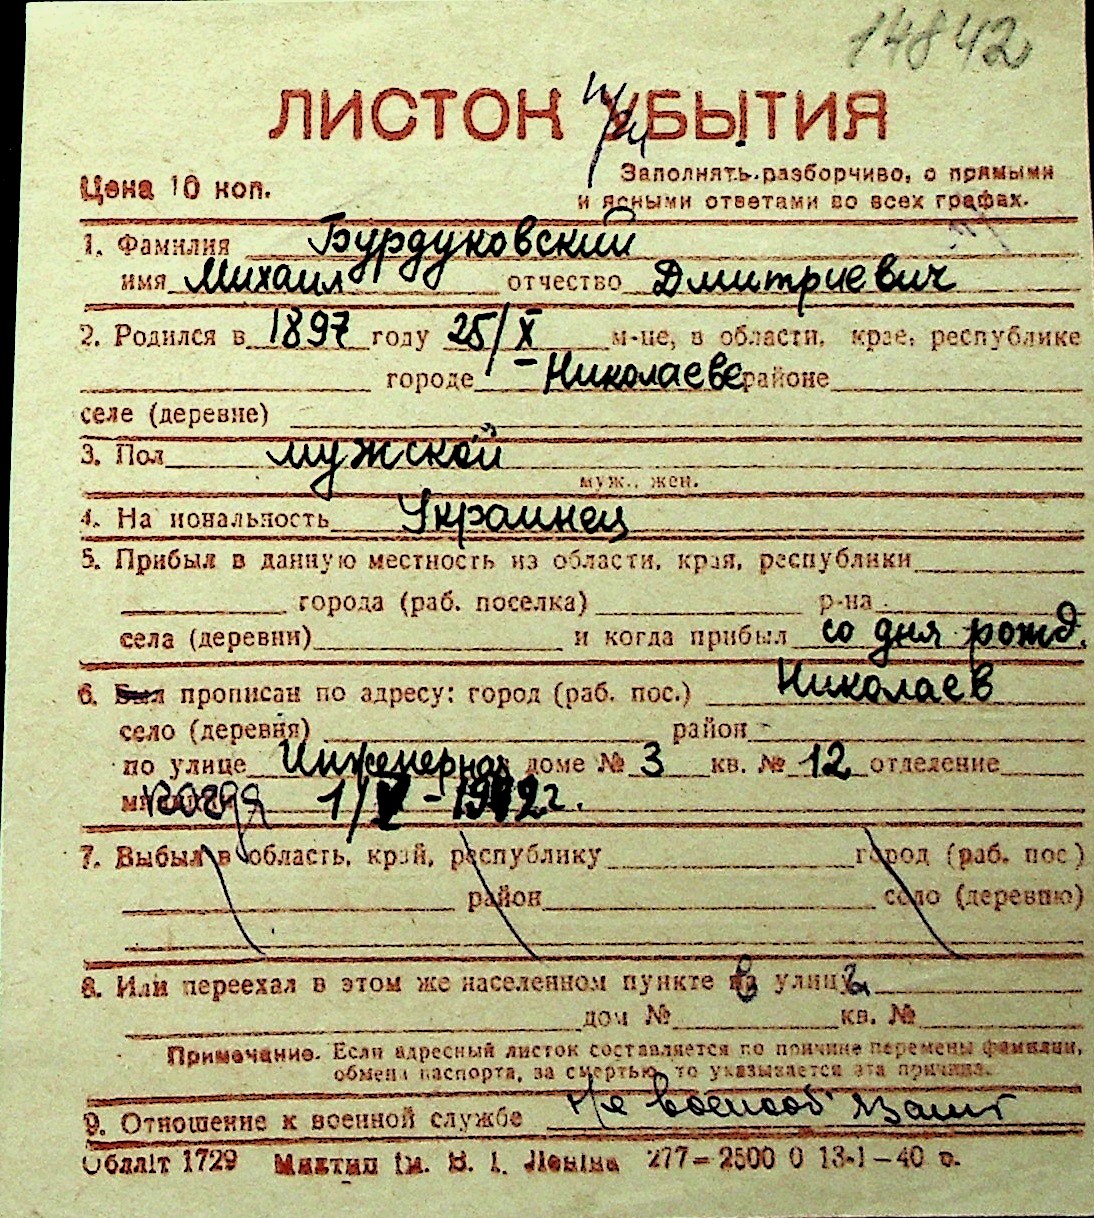 14842
ЛИСТОК УБЫТИЯ
Цена 10 коп.
Заполнять разборчиво, с прямыми
и ясными ответами во всех графах.
1. Фамилия Бурдуковский
имя Михаил отчество Дмитриевич
2. Родился в 1897 году 25/X м-це, в области, крае, республике
городе Николаеве районе
селе (деревне)
3. Пол мужской
муж., жен.
4. На иональность Украинец
5. Прибыл в данную местность из области, края, республики
города (раб. поселка) р-на
села (деревни) и когда прибыл со дня рожд.
6. Был прописан по адресу: город (раб. пос.) Николаев
село (деревня) район
по улице Инженерная доме № 3 кв. № 12 отделение
когда 1/V - 1942 г.
7. Выбыл в область, край, республику город (раб. пос)
район село (деревню)
8. Или переехал в этом же населенном пункте на улицу
дом № кв. №
Примечание. Если адресный листок составляется по причине перемены фамилии,
обмена паспорта, за смертью, то указывается эта причина.
9. Отношение к военной службе Не военнооб
Обллiт 1729 Миктип iм. В. I. Ленiна 277-2500 0 13-I-40 р.